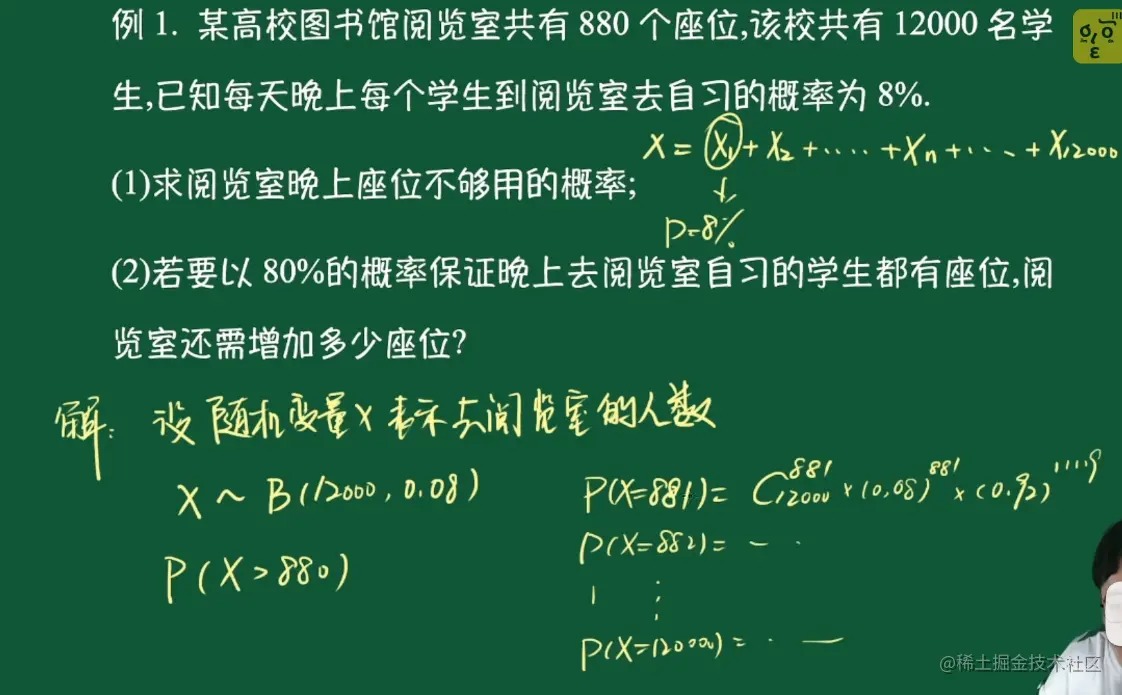 例 1. 某高校图书馆阅览室共有 880 个座位,该校共有 12000 名学
生,已知每天晚上每个学生到阅览室去自习的概率为 8%.
X = X₁ + X₂ + ···· + Xn + ··· + X12000
(1)求阅览室晚上座位不够用的概率;
P=8%
(2)若要以 80%的概率保证晚上去阅览室自习的学生都有座位,阅
览室还需增加多少座位?
解: 设 随机变量 X 表示去阅览室的人数
X ~ B(12000, 0.08)
P(X=881)= C₁₂₀₀₀⁸⁸¹ × (0.08)⁸⁸¹ × (0.92)¹¹¹¹⁹
P(X=882)= — ·
P(X>880)
P(X=12000)= · —
@稀土掘金技术社区